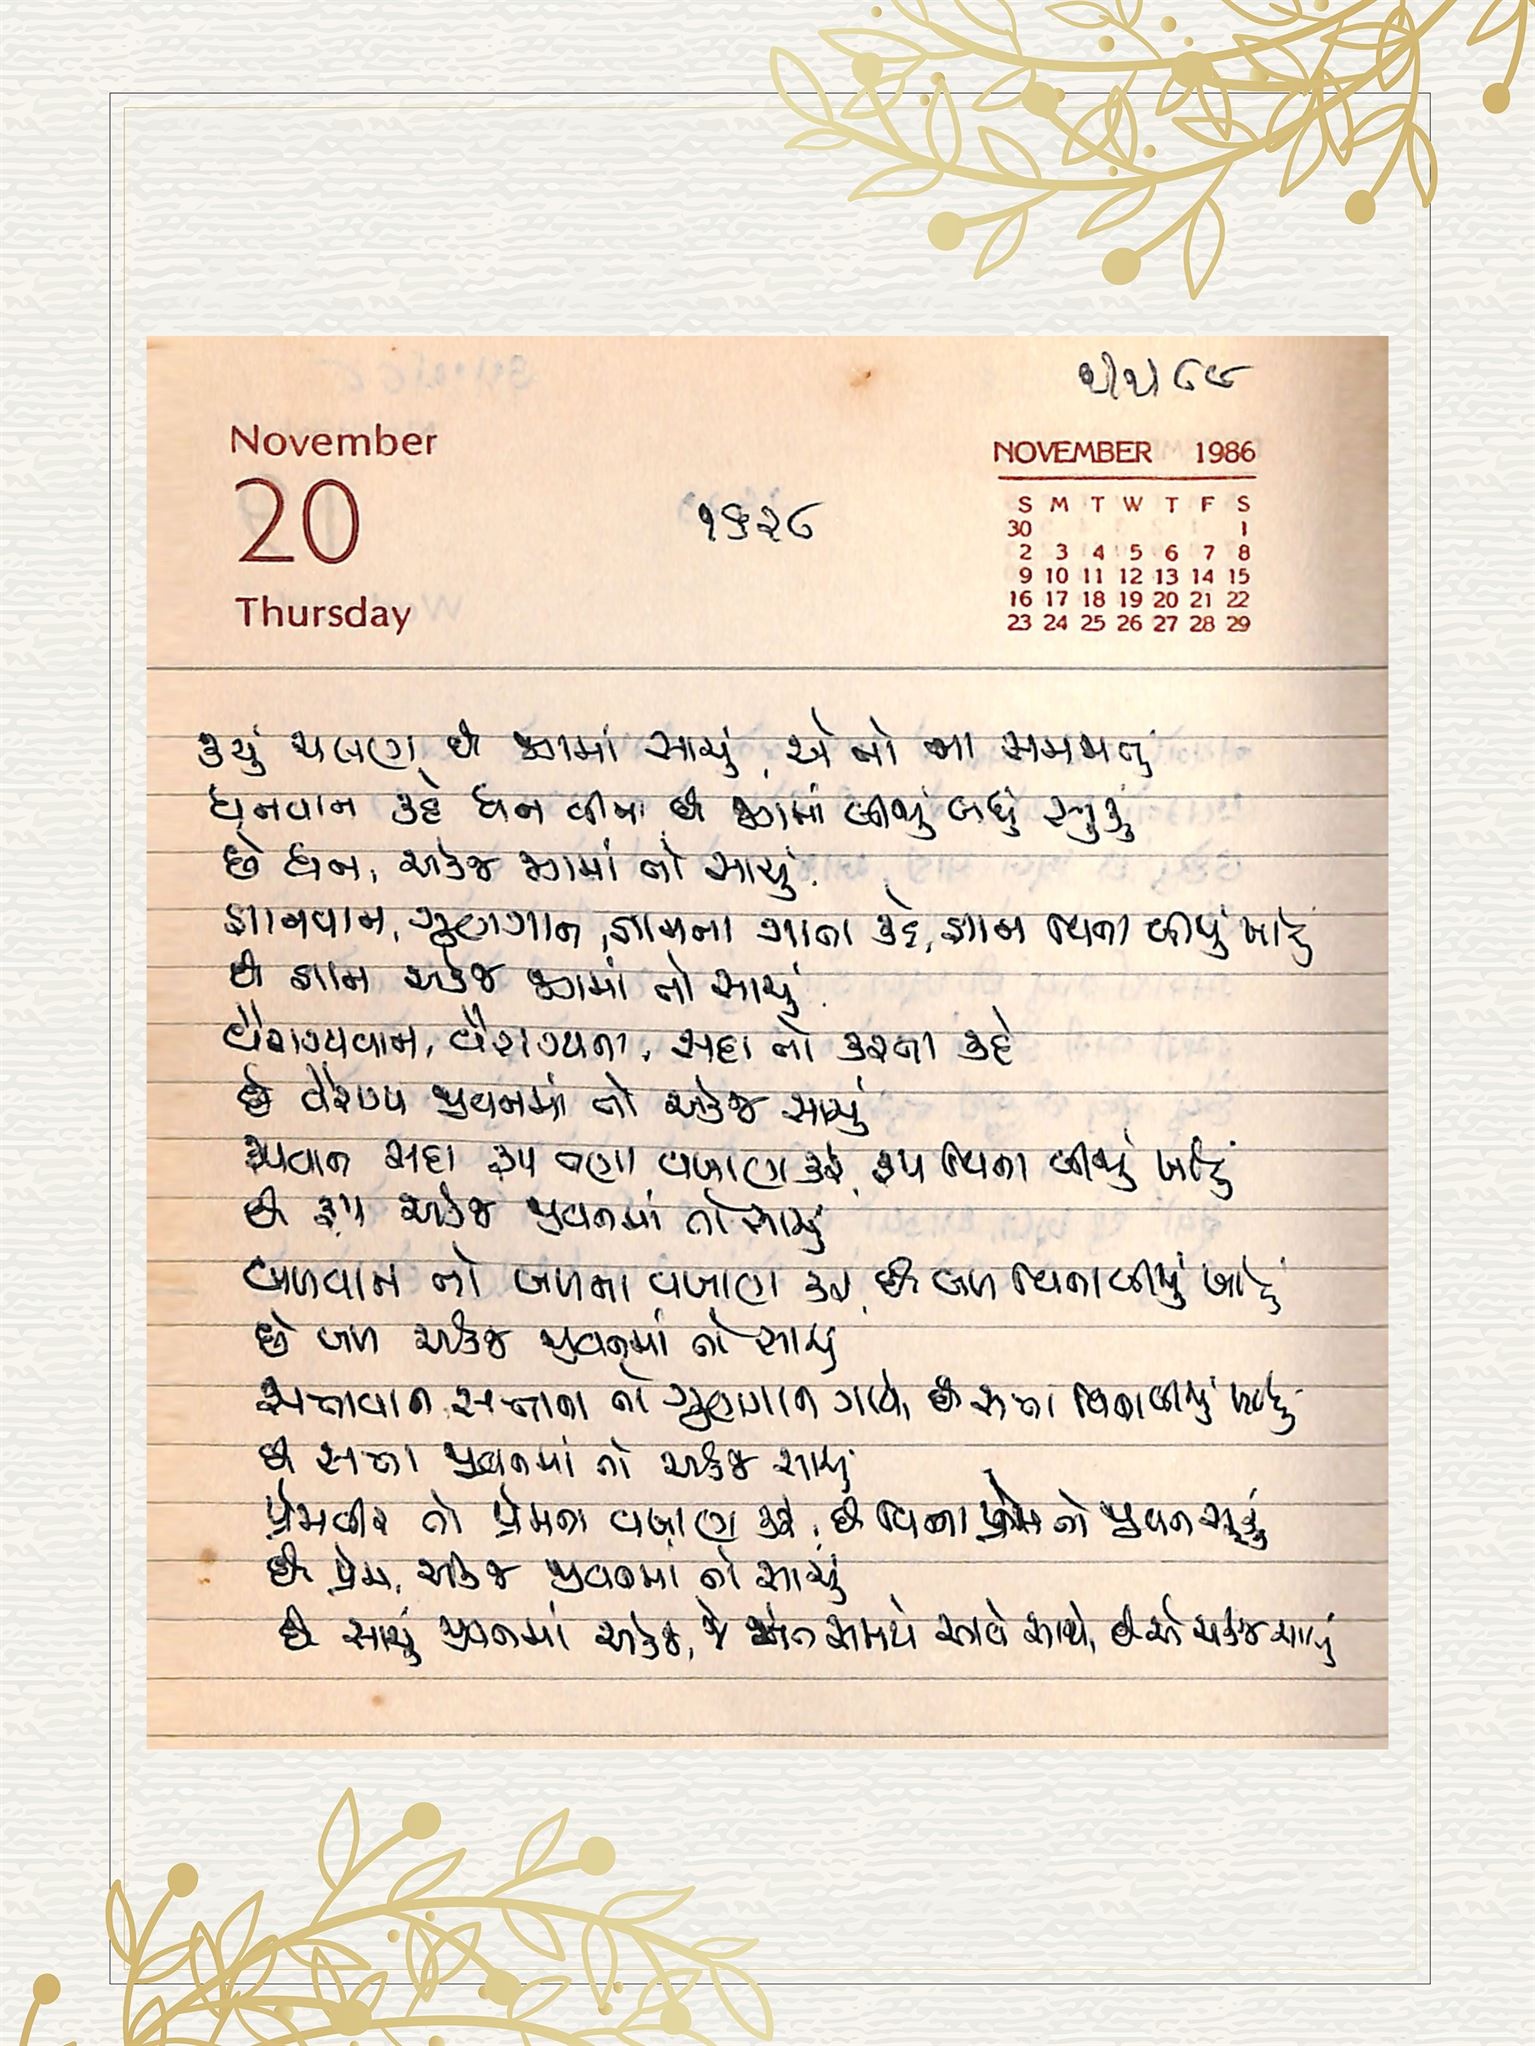 November
20
Thursday
૧૬૨૮
NOVEMBER 1986
S M T W T F S
30 1
2 3 4 5 6 7 8
9 10 11 12 13 14 15
16 17 18 19 20 21 22
23 24 25 26 27 28 29
કયું ચલણ છે જગમાં સાચું, એ તો ના સમજાતું
ધનવાન કહે ધન વિના છે જગમાં બીજું બધું
છે ધન, એકજ જગમાં તો સાચું.
જ્ઞાનવાન, ગુણગાન, જ્ઞાનના ગાતા કહે, જ્ઞાન વિના બીજું ખોટું
છે જ્ઞાન એકજ જગમાં તો સાચું.
વૈરાગ્યવાન, વૈરાગ્યના, સદા તો કહે
છે વૈરાગ્ય જીવનમાં તો એકજ સાચું
રૂપવાન સદા રૂપ વખાણ કરે, રૂપ વિના બીજું ખોટું
છે રૂપ એકજ જીવનમાં તો સાચું
બળવાન તો બળના વખાણ કરે, છે બળ વિના બીજું ખોટું
છે બળ એકજ જીવનમાં તો સાચું
સત્તાવાન સત્તાના તો ગુણગાન ગાયે, છે સત્તા વિના બીજું ખોટું
છે સત્તા જીવનમાં તો એકજ સાચું
પ્રેમવીર તો પ્રેમના વખાણ કરે, છે વિના પ્રેમ તો જીવન સૂકું
છે પ્રેમ, એકજ જીવનમાં તો સાચું
છે સાચું જીવનમાં એકજ, જે અંત સમયે આવે સાથે, છે એ એકજ સાચું